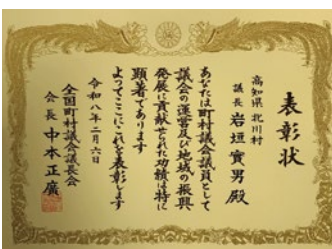 表彰状
高知県 北川村
議長 岩垣實男殿
あなたは町村議会議員として
議会の運営及び地域の振興
発展に貢献せられた功績は特に
顕著であります
よってここにこれを表彰します
令和八年二月六日
全国町村議会議長会
会長 中本正廣